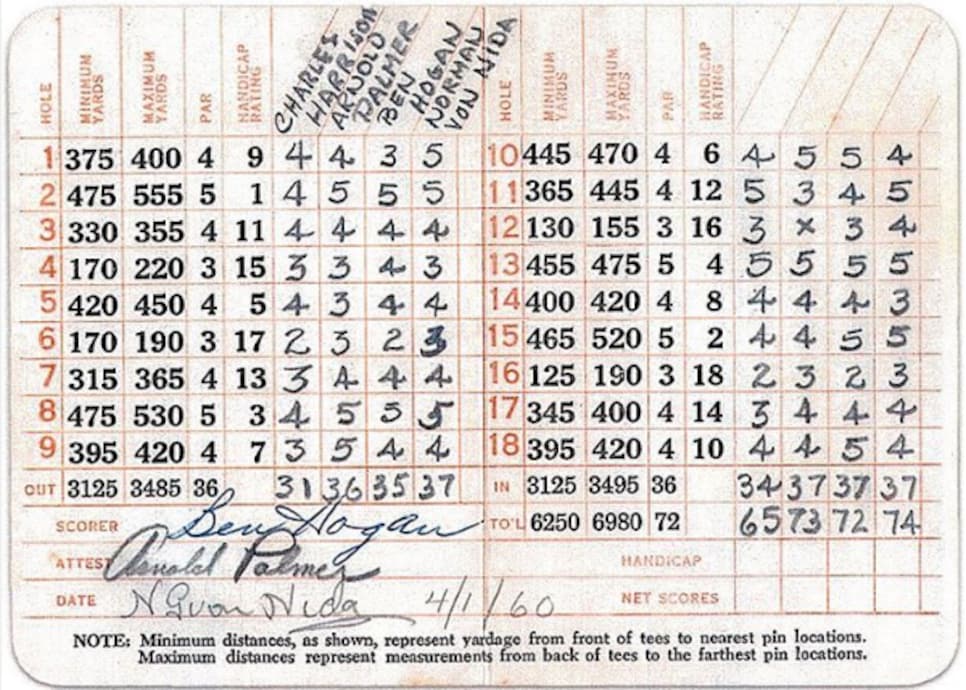 HOLE MINIMUM YARDS MAXIMUM YARDS PAR HANDICAP RATING CHARLES HARRISON ARNOLD PALMER BEN HOGAN NORMAN VON NIDA HOLE MINIMUM YARDS MAXIMUM YARDS PAR HANDICAP RATING
1 375 400 4 9 4 4 3 5 10 445 470 4 6 4 5 5 4
2 475 555 5 1 4 5 5 5 11 365 445 4 12 5 3 4 5
3 330 355 4 11 4 4 4 4 12 130 155 3 16 3 x 3 4
4 170 220 3 15 3 3 4 3 13 455 475 5 4 5 5 5 5
5 420 450 4 5 4 3 4 4 14 400 420 4 8 4 4 4 3
6 170 190 3 17 2 3 2 3 15 465 520 5 2 4 4 5 5
7 315 365 4 13 3 4 4 4 16 125 190 3 18 2 3 2 3
8 475 530 5 3 4 5 5 5 17 345 400 4 14 3 4 4 4
9 395 420 4 7 3 5 4 4 18 395 420 4 10 4 4 5 4
OUT 3125 3485 36 31 36 35 37 IN 3125 3495 36 34 37 37 37
SCORER Ben Hogan TO'L 6250 6980 72 65 73 72 74
ATTEST Arnold Palmer HANDICAP
DATE N G von Nida 4/1/60 NET SCORES
NOTE: Minimum distances, as shown, represent yardage from front of tees to nearest pin locations.
Maximum distances represent measurements from back of tees to the farthest pin locations.